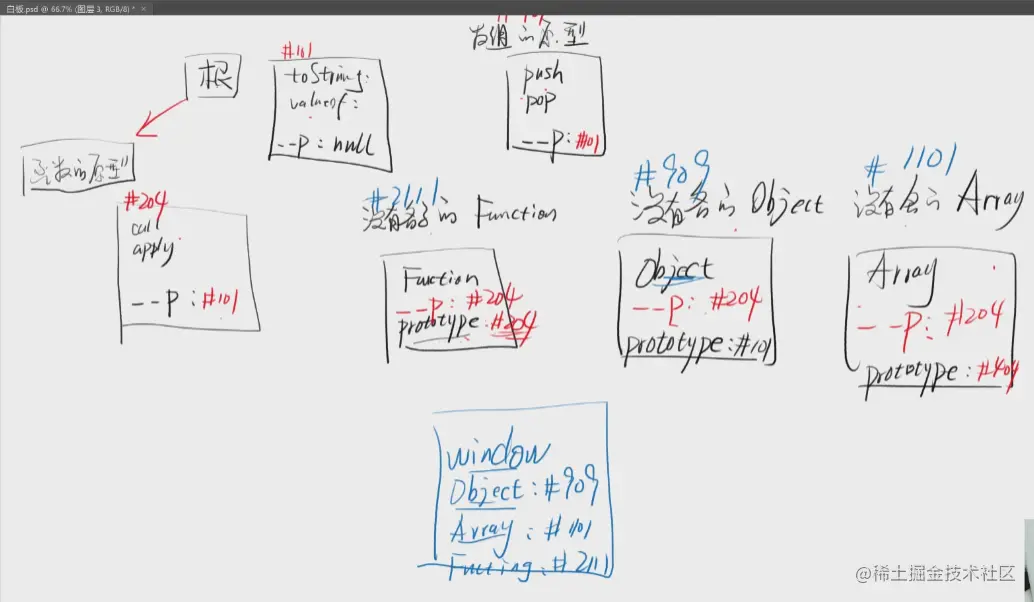 白板.psd @ 66.7% (图层 3, RGB/8) *
根
#101
toString:
valueof:
--p: null
数组的原型
push
pop
--p: #101
函数的原型
#204
call
apply
--p: #101
#2111
没有名字的 Function
Fuction
--p: #204
prototype: #204
#909
没有名的 Object
Object
--p: #204
prototype: #101
#1101
没有名的 Array
Array
--p: #204
prototype: #404
window
Object: #909
Array: #1101
#2111
@稀土掘金技术社区